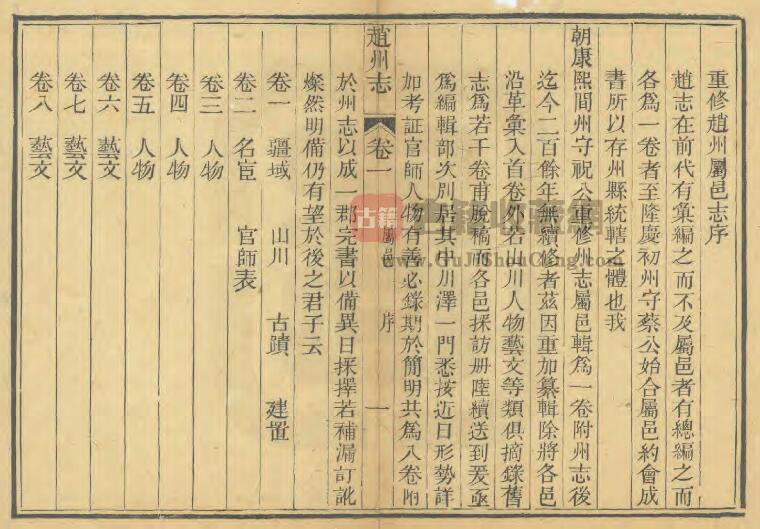 重修趙州屬邑志序
趙志在前代有彙編之而不及屬邑者有總編之而
各爲一卷者至隆慶初州守蔡公始合屬邑約會成
書所以存州縣統轄之體也我
朝康熙間州守祝公重修州志屬邑輯爲一卷附州志後
迄今二百餘年無續修者茲因重加纂輯除將各邑
沿革彙入首卷外若山川人物藝文等類俱摘錄舊
志爲若干卷甫脫稿而各邑採訪册陸續送到爰亟
爲編輯部次別居其中川澤一門悉按近日形勢詳
加考証官師人物有善必錄期於簡明共爲八卷附
趙州志
卷一
屬邑
序
一
於州志以成一郡完書以備異日採擇若補漏訂訛
燦然明備仍有望於後之君子云
卷一 疆域 山川 古蹟 建置
卷二 名宦 官師表
卷三 人物
卷四 人物
卷五 人物
卷六 藝文
卷七 藝文
卷八 藝文
古籍
古籍收藏網
www.GuJiShouCang.com